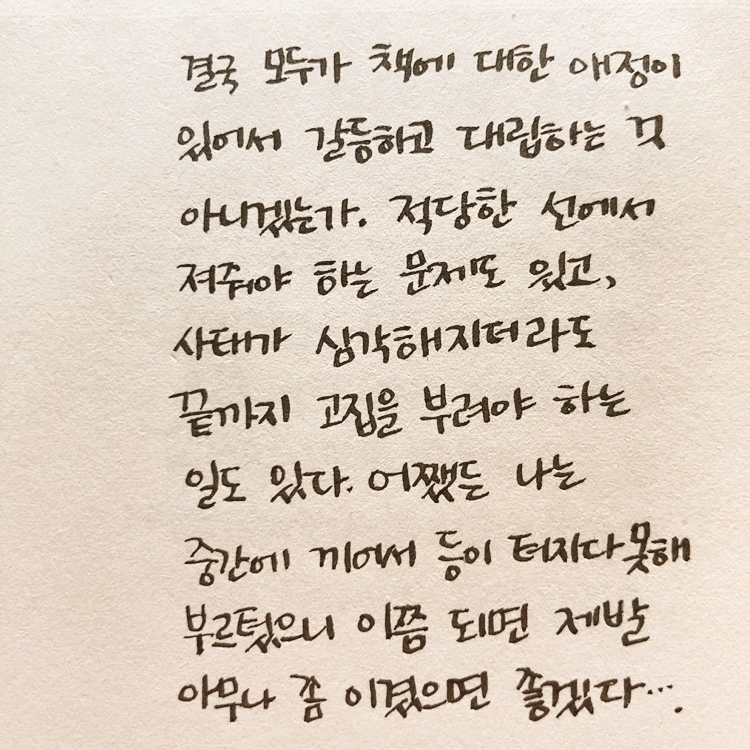 결국 모두가 책에 대한 애정이
있어서 갈등하고 대립하는 것
아니겠는가. 적당한 선에서
져줘야 하는 문제도 있고,
사태가 심각해지더라도
끝까지 고집을 부려야 하는
일도 있다. 어쨌든 나는
중간에 끼어서 등이 터지다못해
부르텄으니 이쯤 되면 제발
아무나 좀 이겼으면 좋겠다….